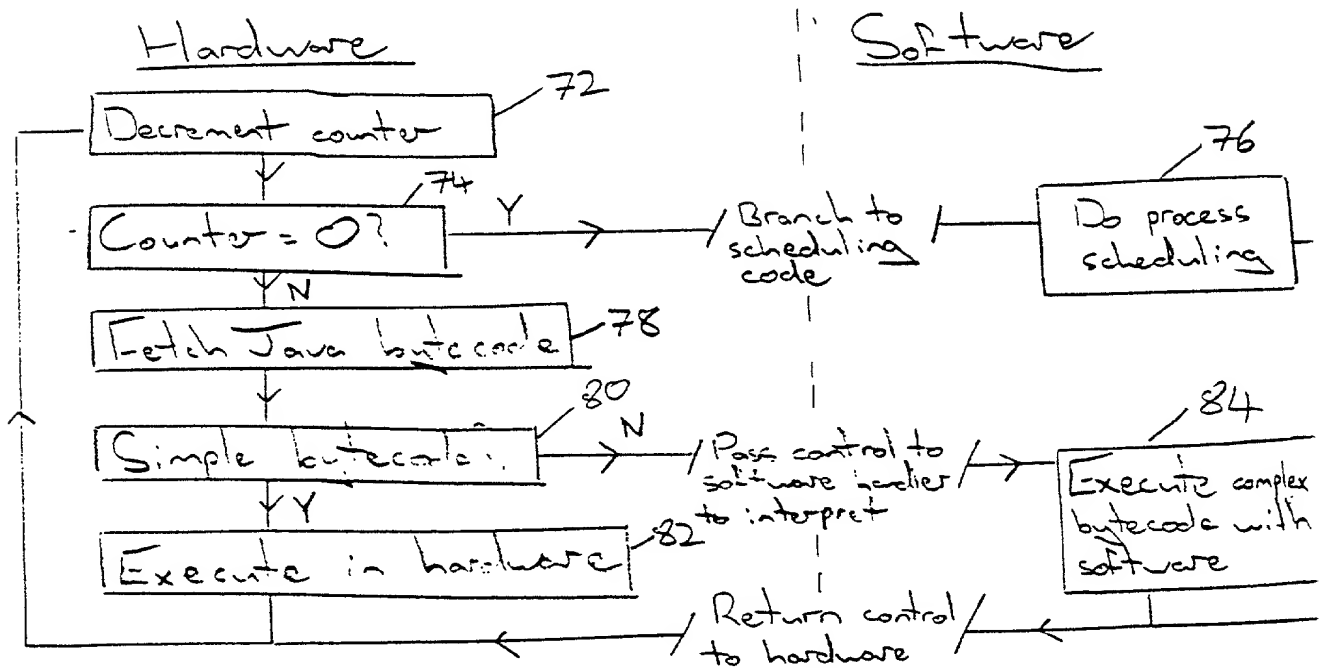 Hardware
Software
72
Decrement counter
74
76
Counter = 0?
Y
Branch to
scheduling
code
Do process
scheduling
N
78
Fetch Java bytecode
80
84
Simple bytecode?
N
Pass control to
software handler
to interpret
Execute complex
bytecode with
software
Y
82
Execute in hardware
Return control
to hardware